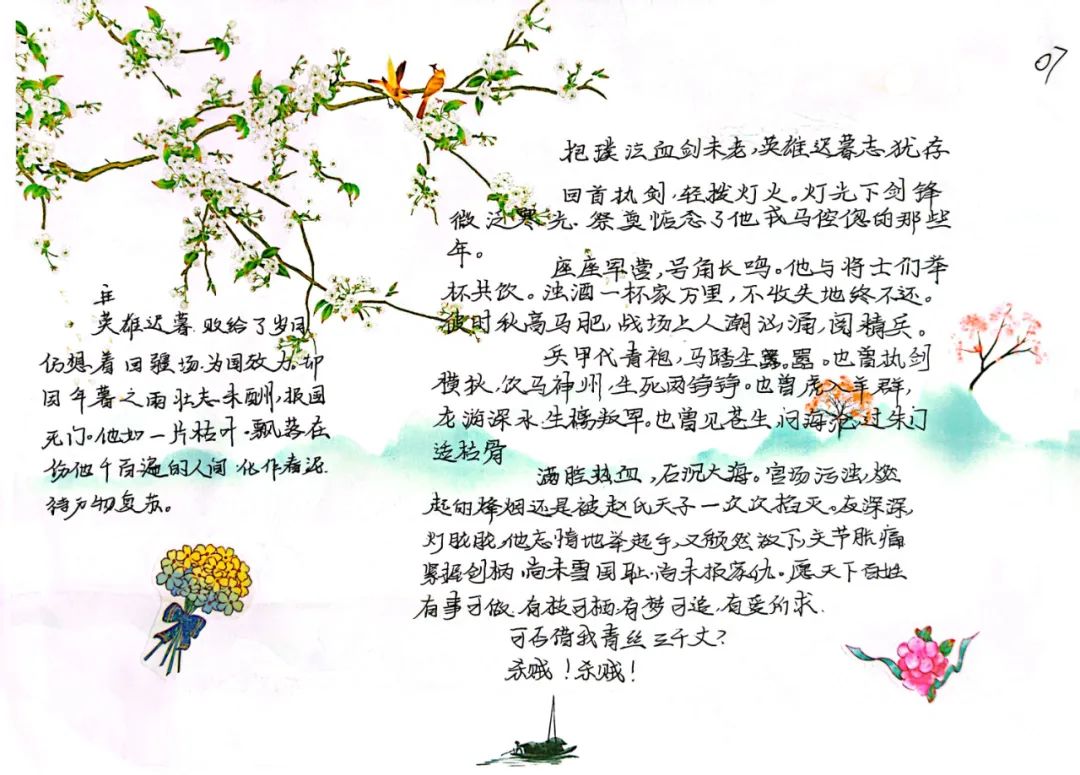 07
抱璞泣血剑未老,英雄迟暮志犹存
回首执剑,轻拨灯火。灯光下剑锋
微泛寒光.祭奠惦念了他戎马倥偬的那些
年。
座座军营,号角长鸣。他与将士们举
杯共饮。浊酒一杯家万里,不收失地终不还。
彼时秋高马肥,战场上人潮汹涌,阅精兵。
兵甲代青袍,马蹄尘嚣嚣。也曾执剑
横秋.饮马神州.生死两铮铮。也曾虎入羊群,
龙游深水.生擒叛军。也曾见苍生.问海沧.过朱门
送枯骨
满腔热血,石沉大海。官场污浊,燃
起的烽烟还是被赵氏天子一次次掐灭。夜深深,
灯胧胧,他忘情地举起手,又颓然放下,关节胀痛
紧握剑柄.尚未雪国耻.尚未报家仇。愿天下百姓
有事可做.有枝可栖.有梦可追.有爱所求.
可否借我青丝三千丈?
杀贼!杀贼!
年
英雄迟暮.败给了岁月
仍想着回疆场.为国效力.却
因年暮之雨壮志未酬,报国
无门。他如一片枯叶.飘落在
伤他千百遍的人间.化作春泥.
待万物复苏。